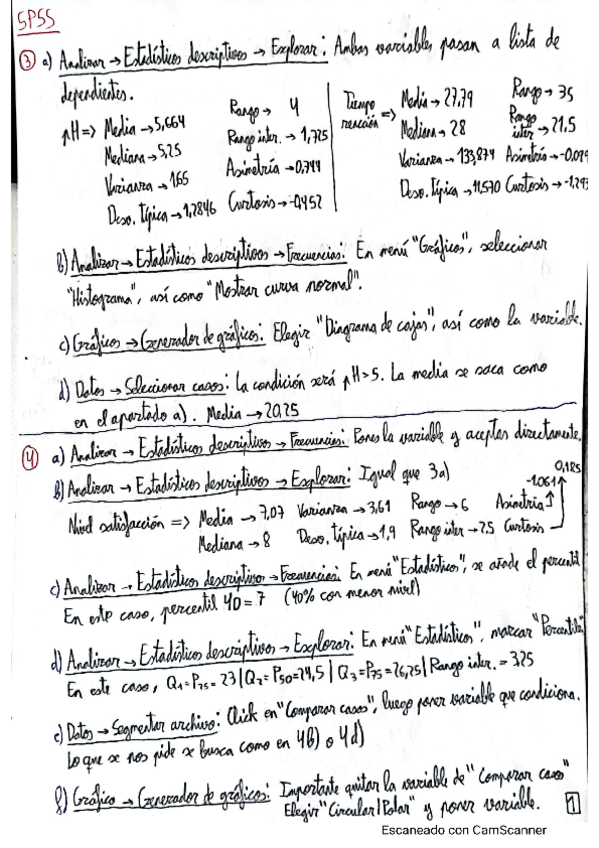 SPSS
③ a) Analizar → Estadísticos descriptivos → Explorar: Ambas variables pasan a lista de
dependientes.
pH => Media → 5,664 Rango → 4
Mediana → 5,25 Rango inter. → 1,725
Varianza → 1,65 Asimetría → 0,744
Desv. Típica → 1,2846 Curtosis → -0,452
Tiempo reacción => Media → 27,79 Rango → 35
Mediana → 28 Rango inter → 21,5
Varianza → 133,874 Asimetría → -0,09
Desv. Típica → 11,570 Curtosis → -1,29
b) Analizar → Estadísticos descriptivos → Frecuencias: En menú "Gráficos", seleccionar
"Histograma", así como "Mostrar curva normal".
c) Gráficos → Generador de gráficos: Elegir "Diagrama de cajas", así como la variable.
d) Datos → Seleccionar casos: La condición será pH>5. La media se saca como
en el apartado a). Media → 20,25
④ a) Analizar → Estadísticos descriptivos → Frecuencias: Pones la variable y aceptas directamente.
b) Analizar → Estadísticos descriptivos → Explorar: Igual que 3a)
Nivel satisfacción => Media → 7,07 Varianza → 3,61 Rango → 6 Asimetría 0,185
Mediana → 8 Desv. típica → 1,9 Rango inter → 2,5 Curtosis -1.061
c) Analizar → Estadísticos descriptivos → Frecuencias: En menú "Estadísticos", se añade el percentil
En este caso, percentil 40 = 7 (40% con menor nivel)
d) Analizar → Estadísticos descriptivos → Explorar: En menú "Estadísticos", marcar "Percentiles
En este caso, Q1=P25= 23 | Q2= P50=24,5 | Q3=P75=26,25 | Rango inter. = 3,25
e) Datos → Segmentar archivo: Click en "Comparar casos", luego poner variable que condiciona.
Lo que se nos pide se busca como en 4b) o 4d)
f) Gráfico → Generador de gráficos: Importante quitar la variable de "Comparar casos"
Elegir "Circular/Polar" y poner variable. 1
Escaneado con CamScanner